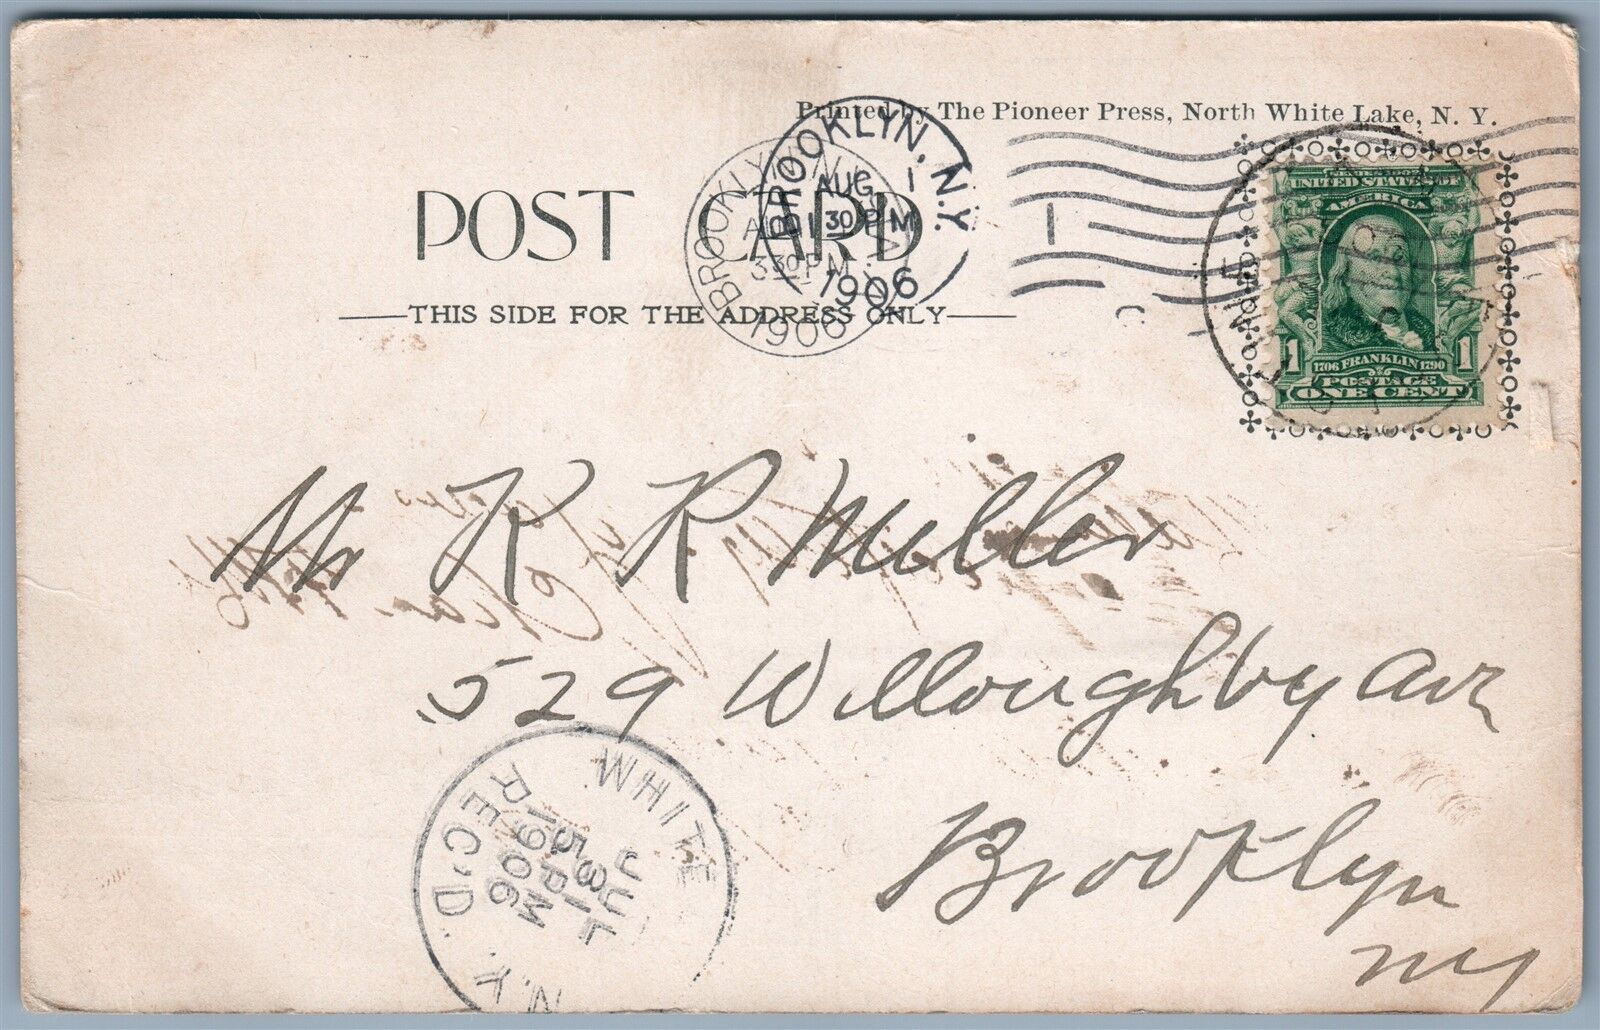 Printed by The Pioneer Press, North White Lake, N. Y.
POST CARD
THIS SIDE FOR THE ADDRESS ONLY
BROOKLYN, N.Y.
AUG 1
30 PM
1906
BROOKLYN
330 PM
1906
1
SERIES 1902
UNITED STATES OF
AMERICA
1 1706 FRANKLIN 1790 1
POSTAGE
ONE CENT
Mr K R Miller
529 Willoughby Ave
Brooklyn
NY
WHITE
JUL
31
5 PM
1906
REC'D.
N.Y.